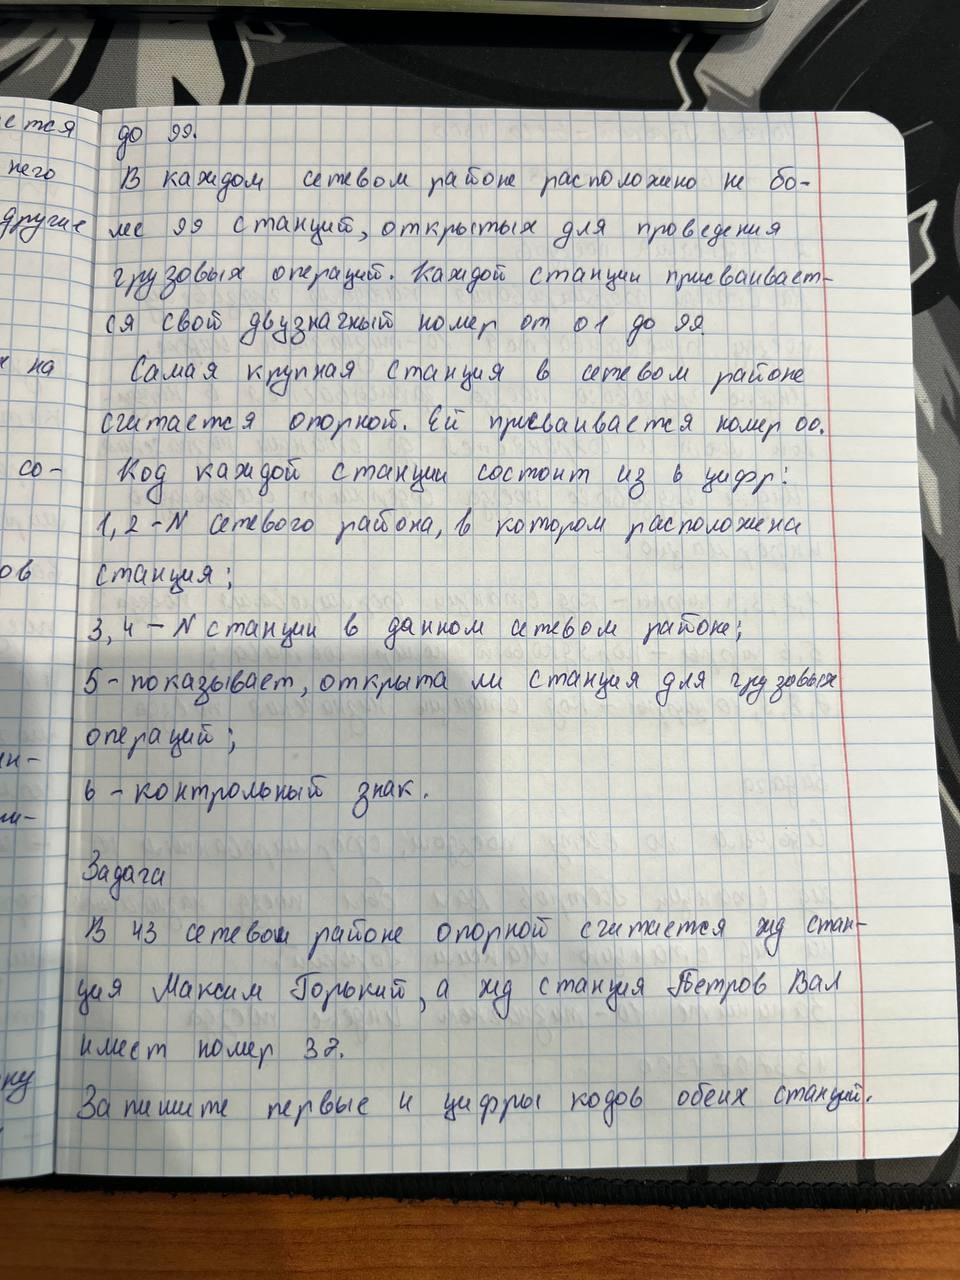 ется
него
другие
на
со-
ов
ин-
ну
до 99.
В каждом сетевом районе расположено не бо-
лее 99 станций, открытых для проведения
грузовых операций. Каждой станции присваивает-
ся свой двузначный номер от 01 до 99
Самая крупная станция в сетевом районе
считается опорной. Ей присваивается номер 00.
Код каждой станции состоит из 6 цифр:
1, 2 - N сетевого района, в котором расположена
станция;
3, 4 - N станции в данном сетевом районе;
5 - показывает, открыта ли станция для грузовых
операций;
6 - контрольный знак.
Задача
В 43 сетевом районе опорной считается жд стан-
ция Максим Горький, а жд станция Петров Вал
имеет номер 37.
Запишите первые 4 цифры кодов обеих станций.